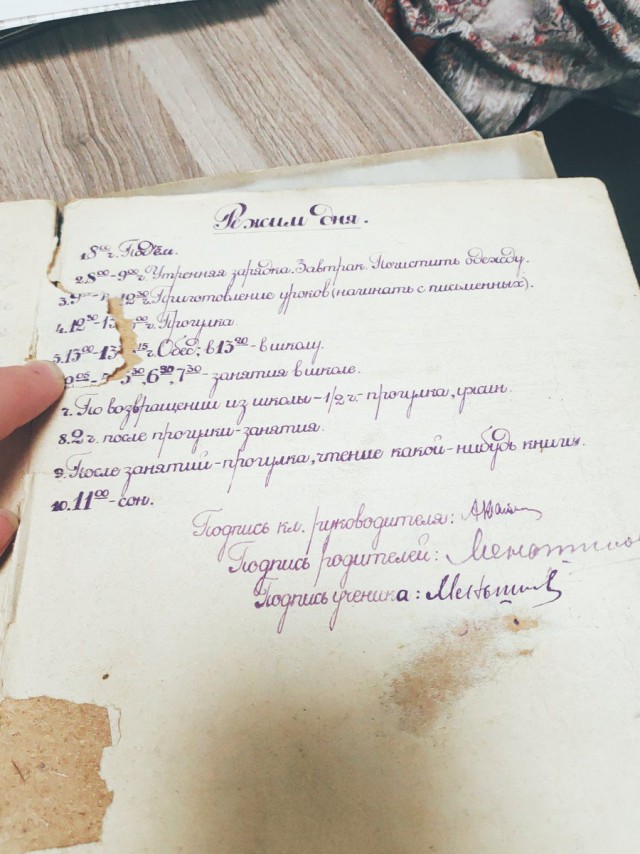 Режим дня.
1.8⁰⁰ч. Подъём.
2.8⁰⁰-9⁰⁰ч. Утренняя зарядка. Завтрак. Почистить одежду.
3. 12³⁰ч. Приготовление уроков (начинать с письменных).
4.12³⁰-13⁰⁰ч. Прогулка.
5.13⁰⁰-13¹⁵ч. Обед; в 13²⁰- в школу.
5³⁰, 6³⁰, 7³⁰- занятия в школе.
7. По возвращении из школы-1/2 ч.- прогулка, ужин.
8.2 ч. после прогулки-занятия.
9. После занятий-прогулка, чтение какой-нибудь книги.
10.11⁰⁰-сон.
Подпись кл. руководителя:
Подпись родителей:
Подпись ученика: